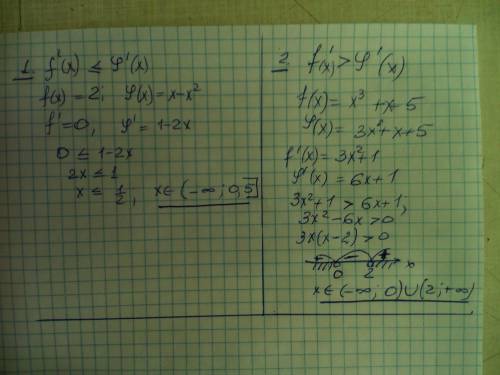 1. f'(x) ≤ φ'(x)
f(x) = 2; φ(x) = x-x²
f' = 0, φ' = 1-2x
0 ≤ 1-2x
2x ≤ 1
x ≤ 1/2, x ∈ (-∞; 0,5]
2. f'(x) > φ'(x)
f(x) = x³ + x - 5
φ(x) = 3x² + x + 5
f'(x) = 3x²+1
φ'(x) = 6x+1
3x²+1 > 6x+1,
3x²-6x > 0
3x(x-2) > 0
+ - +
0 2 x
x ∈ (-∞; 0) ∪ (2; +∞)